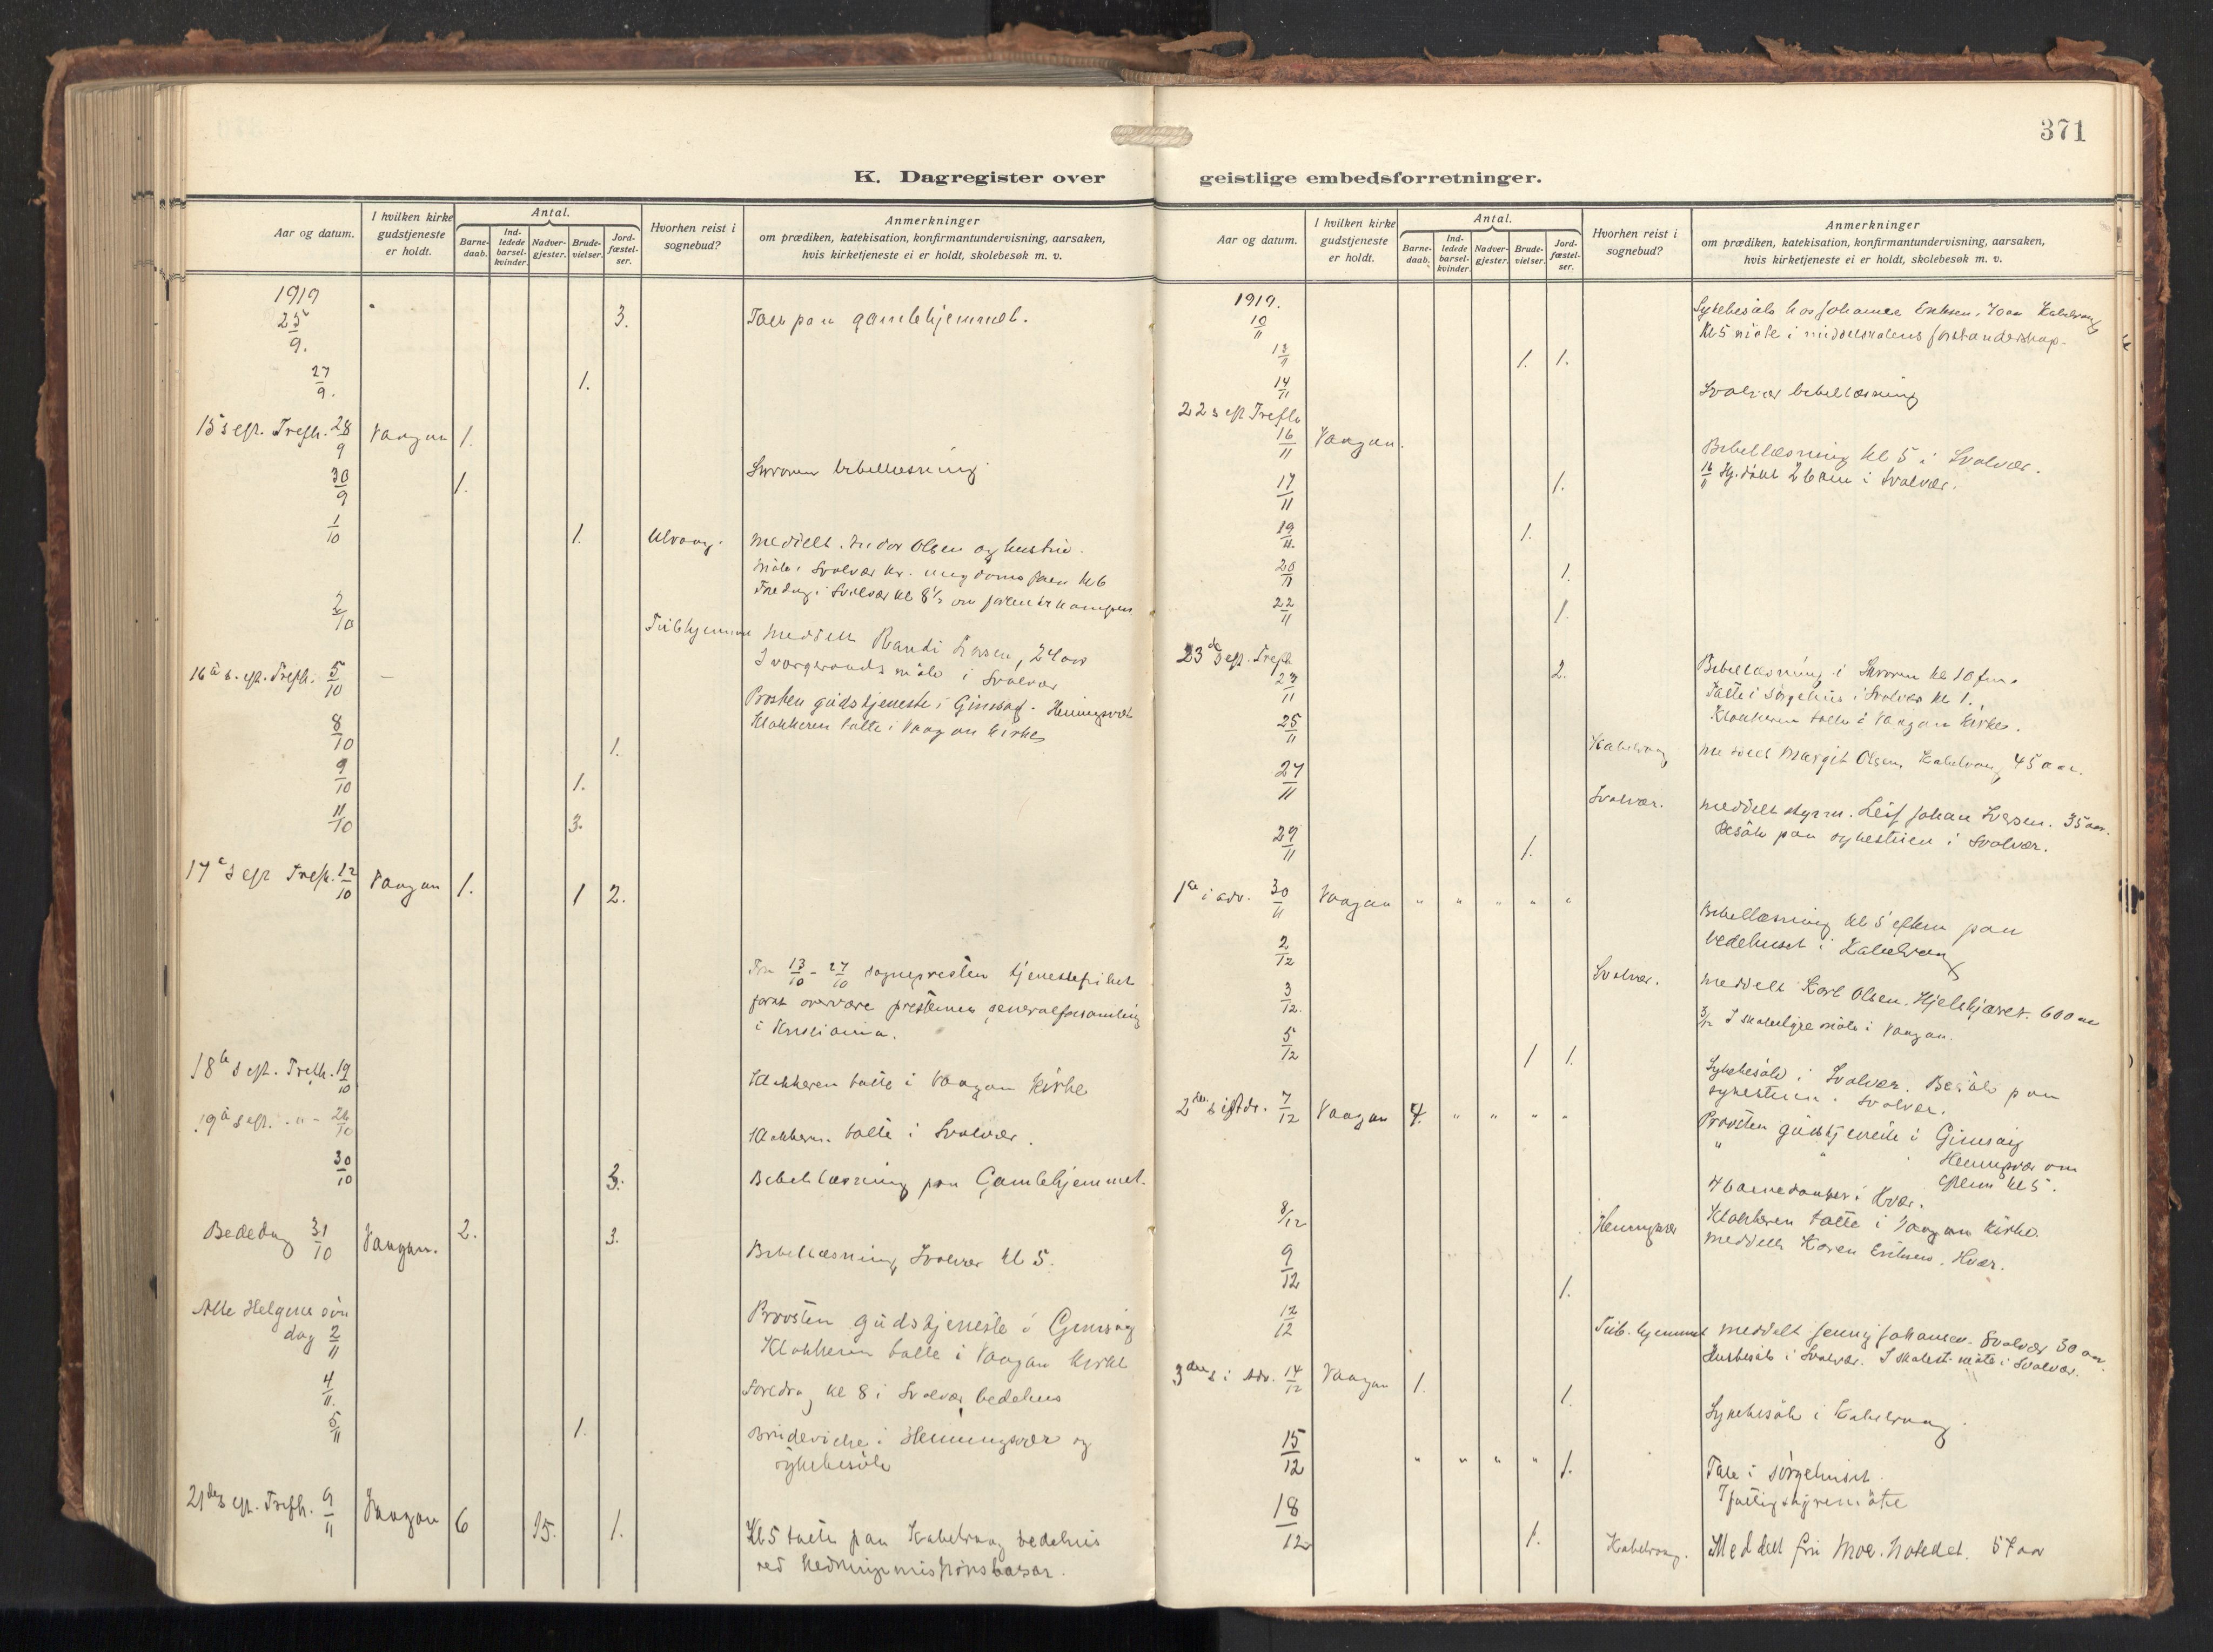 371
K. Dagregister over geistlige embedsforretninger.
Aar og datum.
I hvilken kirke gudstjeneste er holdt.
Antal.
Barne-daab.
Ind-ledede barsel-kvinder.
Nadver-gjester.
Brude-vielser.
Jord-fæstel-ser.
Hvorhen reist i sognebud?
Anmerkninger
om prædiken, katekisation, konfirmantundervisning, aarsaken,
hvis kirketjeneste ei er holdt, skolebesøk m. v.
1919
25/9. 3. Tale paa gamlehjemmet.
27/9. 1.
15 s eft. Trefh. 28/9 Vaagan 1.
30/9 1. Skroven bibellæsning
1/10 1. meddelt. Olsen og hustru.
møte i Svolvær kr. ungdoms kl 6
Foredrag i Svolvær kl 8½ om
2/10 Tub hjemmet meddelt Randi 24 aar
møte i Svolvær
16de s. eft. Trefh. 5/10 — Prosten gudstjeneste i Gimsøy. Henningsvær
Klokkeren talte i Vaagan kirke
8/10 1.
9/10 1.
11/10 3.
17de s eft Trefh. 12/10 Vaagan 1. 1 2.
Fra 13/10 - 27/10 sognepresten tjenestefrihet
for at overvære presternes generalforsamling
i Kristiania.
18de s eft. Trefh. 19/10 Klokkeren talte i Vaagan kirke
19de s eft. - " - 26/10 Klokkeren talte i Svolvær.
30/10 3. Bibellæsning paa Gamlehjemmet.
Bededag 31/10 Vaagan. 2. 3. Bibellæsning, Svolvær kl 5.
Alle Helgens søn
dag 2/11 Provsten gudstjeneste i Gimsøy
Klokkeren talte i Vaagan kirke
4/11. Foredrag kl 8 i Svolvær bedehus
5/11 1. Brudevielse i Henningsvær og
sykebesøk
21de s eft. Trefh. 9/11 Vaagan 6 15. 1. Kl 5 talte paa Kabelvaag bedehus
ved Hedningemissionsbasar.
Aar og datum.
I hvilken kirke gudstjeneste er holdt.
Antal.
Barne-daab.
Ind-ledede barsel-kvinder.
Nadver-gjester.
Brude-vielser.
Jord-fæstel-ser.
Hvorhen reist i sognebud?
Anmerkninger
om prædiken, katekisation, konfirmantundervisning, aarsaken,
hvis kirketjeneste ei er holdt, skolebesøk m. v.
1919.
10/11 Sykebesøk hos Johanne 70 aar Kabelvaag
Kl 5 møte i middelskolens forstanderskap.
13/11 1. 1.
14/11 Svolvær bibellæsning
22 s eft Trefh
16/11 Vaagan. Bibellæsning kl 5 i Svolvær.
17/11 1. 16/11 2 barn i Svolvær.
19/11. 1.
20/11 1.
22/11 1.
23de s eft. Trefh
23/11 2. Bibellæsning i Skroven kl 10 fm.
Talte i sørgehus i Svolvær kl 1.
Klokkeren talte i Vaagan kirke.
25/11 Kabelvaag meddelt Margit Olsen, Kabelvaag, 45 aar.
27/11 Svolvær. meddelt styrm. Leif Johan Iversen. 35 aar.
Besøk paa sykestuen i Svolvær.
29/11 1.
1ste s i adv. 30/11 Vaagan " " " " " Bibellæsning kl 5 eftm paa
bedehuset i Kabelvaag
2/12 Svolvær. meddelt Karl Olsen. 60 aar
3/12. 3/12 I skolestyremøte i Vaagan.
5/12 1 1. Sykebesøk i Svolvær. Besøk paa
sykestuen i Svolvær.
2den s i Adv. 7/12 Vaagan 4. " " " " Provsten gudstjeneste i Gimsøy
" " Henningsvær om
eftm kl 5.
4 barnedaaber i Hvær.
Klokkeren talte i Vaagan kirke.
8/12 Henningsvær meddelt Karen Eriksen. Hvær.
9/12 1.
12/12 Tub. hjemmet meddelt Jenny Johansen. Svolvær 30 aar.
Husbesøk i Svolvær. I skolest. møte i Svolvær.
3die s i Adv. 14/12 Vaagan 1. 1. Sykebesøk i Kabelvaag.
15/12 " " " " 1. Tale i sørgehuset.
I fattigstyremøte
18/12 1. Kabelvaag. Meddelt fru Moe. 57 aar